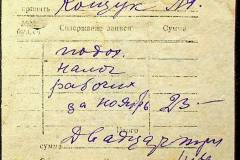 Кощук М.
Содержание записи Сумма
подох.
налог
рабочих
за ноябрь 23—
Двадцать три
сумма